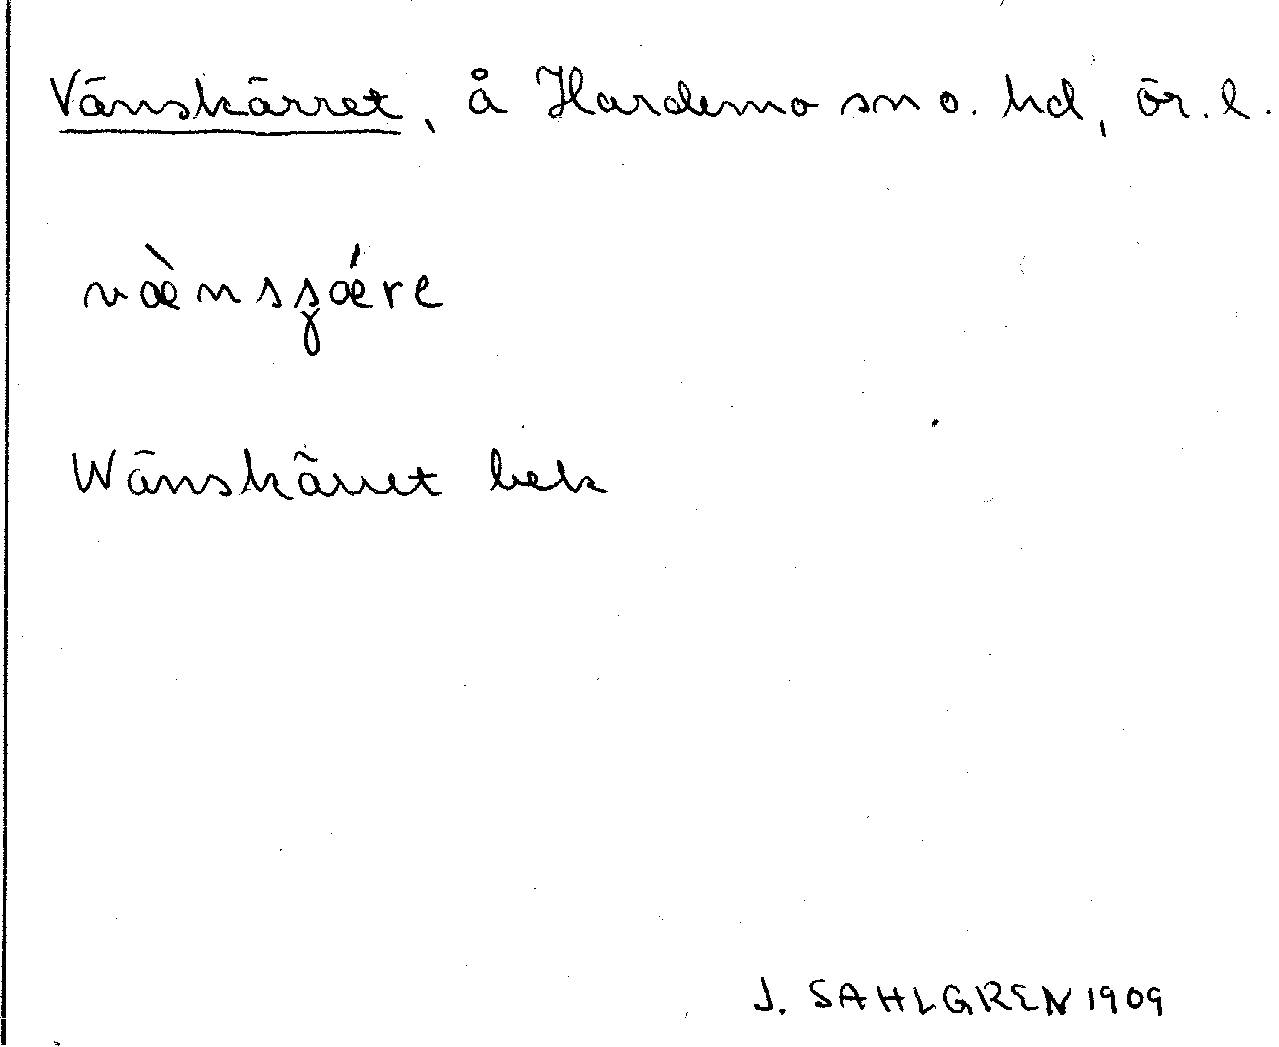 Vänskärret, å Hardemo sn o. hd, ör. l.
væ̀nsʂǽre
Wänskärret bek
J. SAHLGREN 1909